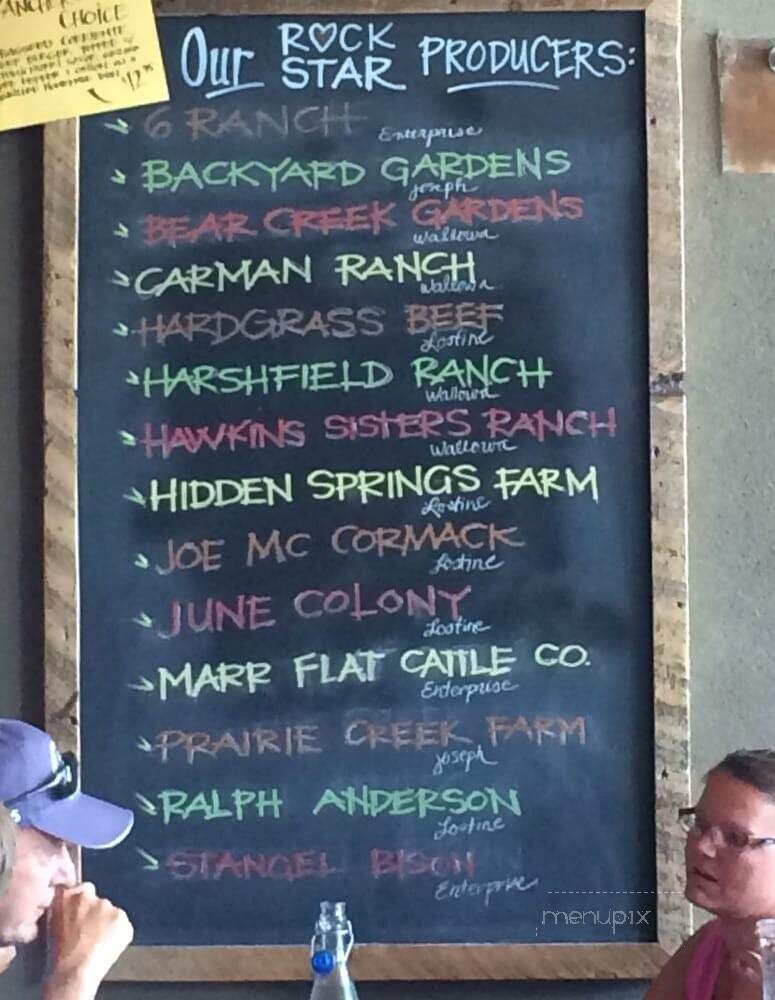 CHOICE
Our ROCK STAR PRODUCERS:
6 RANCH
Enterprise
BACKYARD GARDENS
Joseph
BEAR CREEK GARDENS
Wallowa
CARMAN RANCH
Wallowa
HARDGRASS BEEF
Lostine
HARSHFIELD RANCH
Wallowa
HAWKINS SISTERS RANCH
Wallowa
HIDDEN SPRINGS FARM
Lostine
JOE MC CORMACK
Lostine
JUNE COLONY
Lostine
MARR FLAT CATTLE CO.
Enterprise
PRAIRIE CREEK FARM
Joseph
RALPH ANDERSON
Lostine
STANGEL BISON
Enterprise
menupix